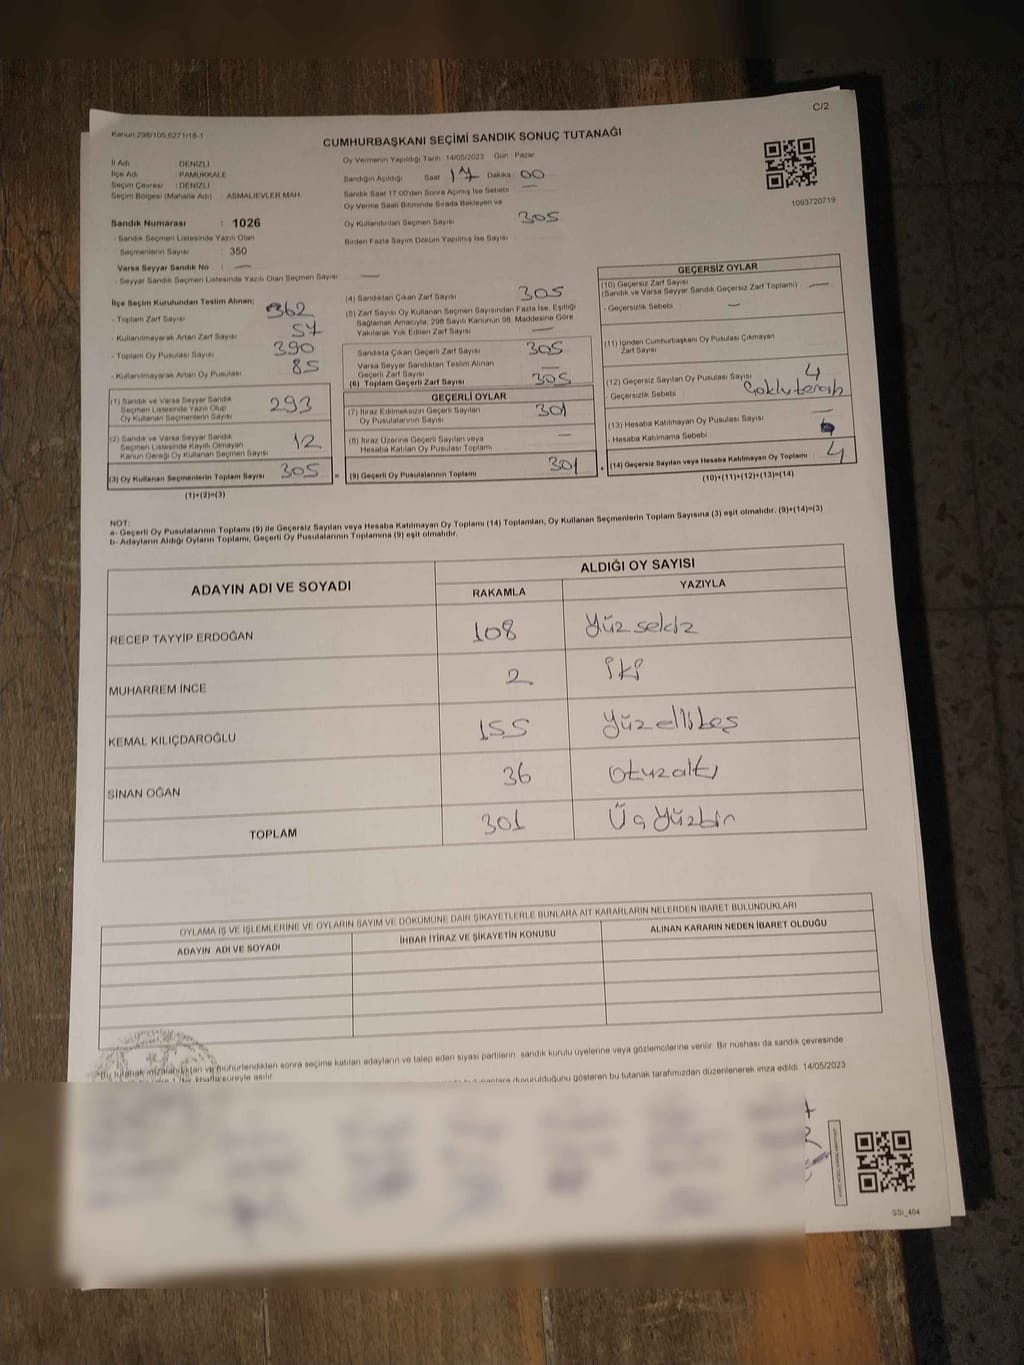 C/2
Kanun:298/105,6271/18-1
CUMHURBAŞKANI SEÇİMİ SANDIK SONUÇ TUTANAĞI
İl Adı : DENİZLİ
İlçe Adı : PAMUKKALE
Seçim Çevresi : DENİZLİ
Seçim Bölgesi (Mahalle Adı) : ASMALIEVLER MAH
Sandık Numarası : 1026
- Sandık Seçmen Listesinde Yazılı Olan
Seçmenlerin Sayısı : 350
Varsa Seyyar Sandık No : —
- Seyyar Sandık Seçmen Listesinde Yazılı Olan Seçmen Sayısı : —
Oy Vermenin Yapıldığı Tarih : 14/05/2023 Gün : Pazar
Sandığın Açıldığı Saat : 17 Dakika : 00
Sandık Saat 17.00'den Sonra Açılmış İse Sebebi : —
Oy Verme Saati Bitiminde Sırada Bekleyen ve
Oy Kullandırılan Seçmen Sayısı : 305
Birden Fazla Sayım Döküm Yapılmış İse Sayısı : —
1093720719
İlçe Seçim Kurulundan Teslim Alınan;
- Toplam Zarf Sayısı : 362
- Kullanılmayarak Artan Zarf Sayısı : 57
- Toplam Oy Pusulası Sayısı : 390
- Kullanılmayarak Artan Oy Pusulası : 85
(1) Sandık ve Varsa Seyyar Sandık
Seçmen Listesinde Yazılı Olup
Oy Kullanan Seçmenlerin Sayısı 293
(2) Sandık ve Varsa Seyyar Sandık
Seçmen Listesinde Kayıtlı Olmayan
Kanun Gereği Oy Kullanan Seçmen Sayısı 12
(3) Oy Kullanan Seçmenlerin Toplam Sayısı 305
(1)+(2)=(3)
(4) Sandıktan Çıkan Zarf Sayısı : 305
(5) Zarf Sayısı Oy Kullanan Seçmen Sayısından Fazla İse, Eşitliği
Sağlamak Amacıyla, 298 Sayılı Kanunun 98. Maddesine Göre
Yakılarak Yok Edilen Zarf Sayısı : —
Sandıkta Çıkan Geçerli Zarf Sayısı : 305
Varsa Seyyar Sandıktan Teslim Alınan
Geçerli Zarf Sayısı : —
(6) Toplam Geçerli Zarf Sayısı : 305
GEÇERLİ OYLAR
(7) İtiraz Edilmeksizin Geçerli Sayılan
Oy Pusulalarının Sayısı : 301
(8) İtiraz Üzerine Geçerli Sayılan veya
Hesaba Katılan Oy Pusulası Toplamı : —
= (9) Geçerli Oy Pusulalarının Toplamı : 301
GEÇERSİZ OYLAR
(10) Geçersiz Zarf Sayısı
(Sandık ve Varsa Seyyar Sandık Geçersiz Zarf Toplamı) : —
- Geçersizlik Sebebi : —
(11) İçinden Cumhurbaşkanı Oy Pusulası Çıkmayan
Zarf Sayısı :
(12) Geçersiz Sayılan Oy Pusulası Sayısı : 4
- Geçersizlik Sebebi : Çoklu tercih
(13) Hesaba Katılmayan Oy Pusulası Sayısı : —
- Hesaba Katılmama Sebebi :
+ (14) Geçersiz Sayılan veya Hesaba Katılmayan Oy Toplamı : 4
(10)+(11)+(12)+(13)=(14)
NOT:
a- Geçerli Oy Pusulalarının Toplamı (9) ile Geçersiz Sayılan veya Hesaba Katılmayan Oy Toplamı (14) Toplamları, Oy Kullanan Seçmenlerin Toplam Sayısına (3) eşit olmalıdır. (9)+(14)=(3)
b- Adayların Aldığı Oyların Toplamı, Geçerli Oy Pusulalarının Toplamına (9) eşit olmalıdır.
ADAYIN ADI VE SOYADI
ALDIĞI OY SAYISI
RAKAMLA YAZIYLA
RECEP TAYYİP ERDOĞAN 108 Yüz sekiz
MUHARREM İNCE 2 İki
KEMAL KILIÇDAROĞLU 155 Yüzellibeş
SİNAN OĞAN 36 Otuzaltı
TOPLAM 301 Üç Yüzbir
OYLAMA İŞ VE İŞLEMLERİNE VE OYLARIN SAYIM VE DÖKÜMÜNE DAİR ŞİKAYETLERLE BUNLARA AİT KARARLARIN NELERDEN İBARET BULUNDUKLARI
ADAYIN ADI VE SOYADI İHBAR İTİRAZ VE ŞİKAYETİN KONUSU ALINAN KARARIN NEDEN İBARET OLDUĞU
Bu tutanak imzalandıktan ve mühürlendikten sonra seçime katılan adayların ve talep eden siyasi partilerin sandık kurulu üyelerine veya gözlemcilerine verilir. Bir nüshası da sandık çevresinde
süreyle asılır.
duyurulduğunu gösteren bu tutanak tarafımızdan düzenlenerek imza edildi. 14/05/2023
SSI_404